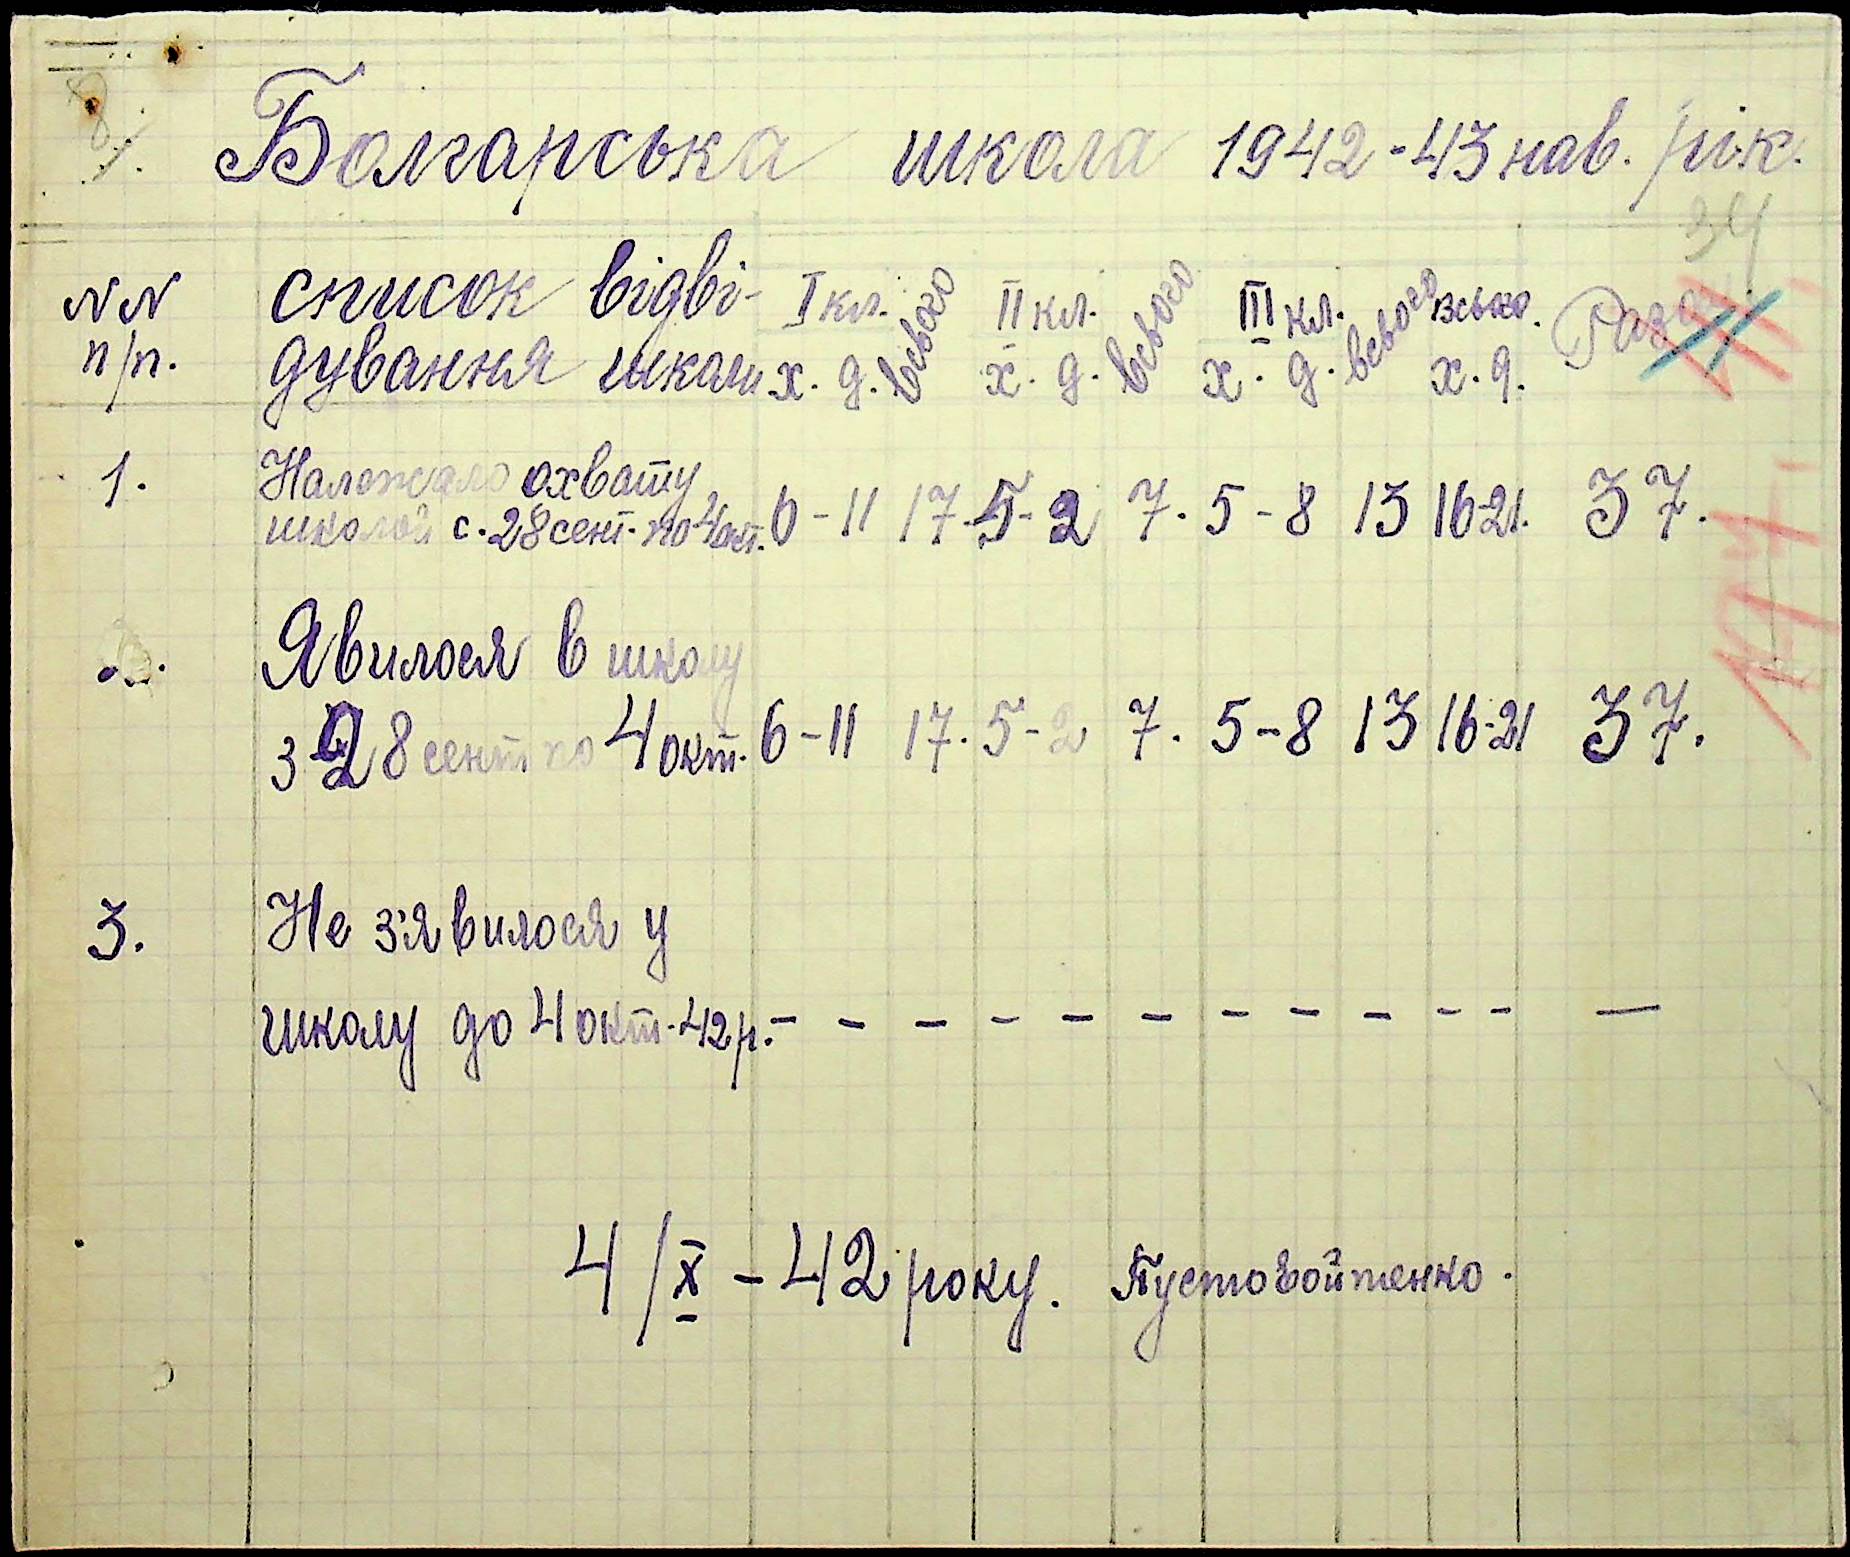 Болгарська школа 1942-43 нав. рік.
34
NN список відві- I кл. всього II кл. всього III кл. всього всього. Разом
п/п. дування школи х. д. х. д. х. д. х. д.
1. Належало охвату
школой с. 28 сент. по 4 окт. 6-11 17. 5-2 7. 5-8 13 16-21. 37.
Явилося в школу
з 28 сент по 4 окт. 6-11 17. 5-2 7. 5-8 13 16-21 37.
3. Не зʼявилося у
школу до 4 окт-42 р. - - - - - - - - - - - —
4/X-42 року. Пустовойтенко.